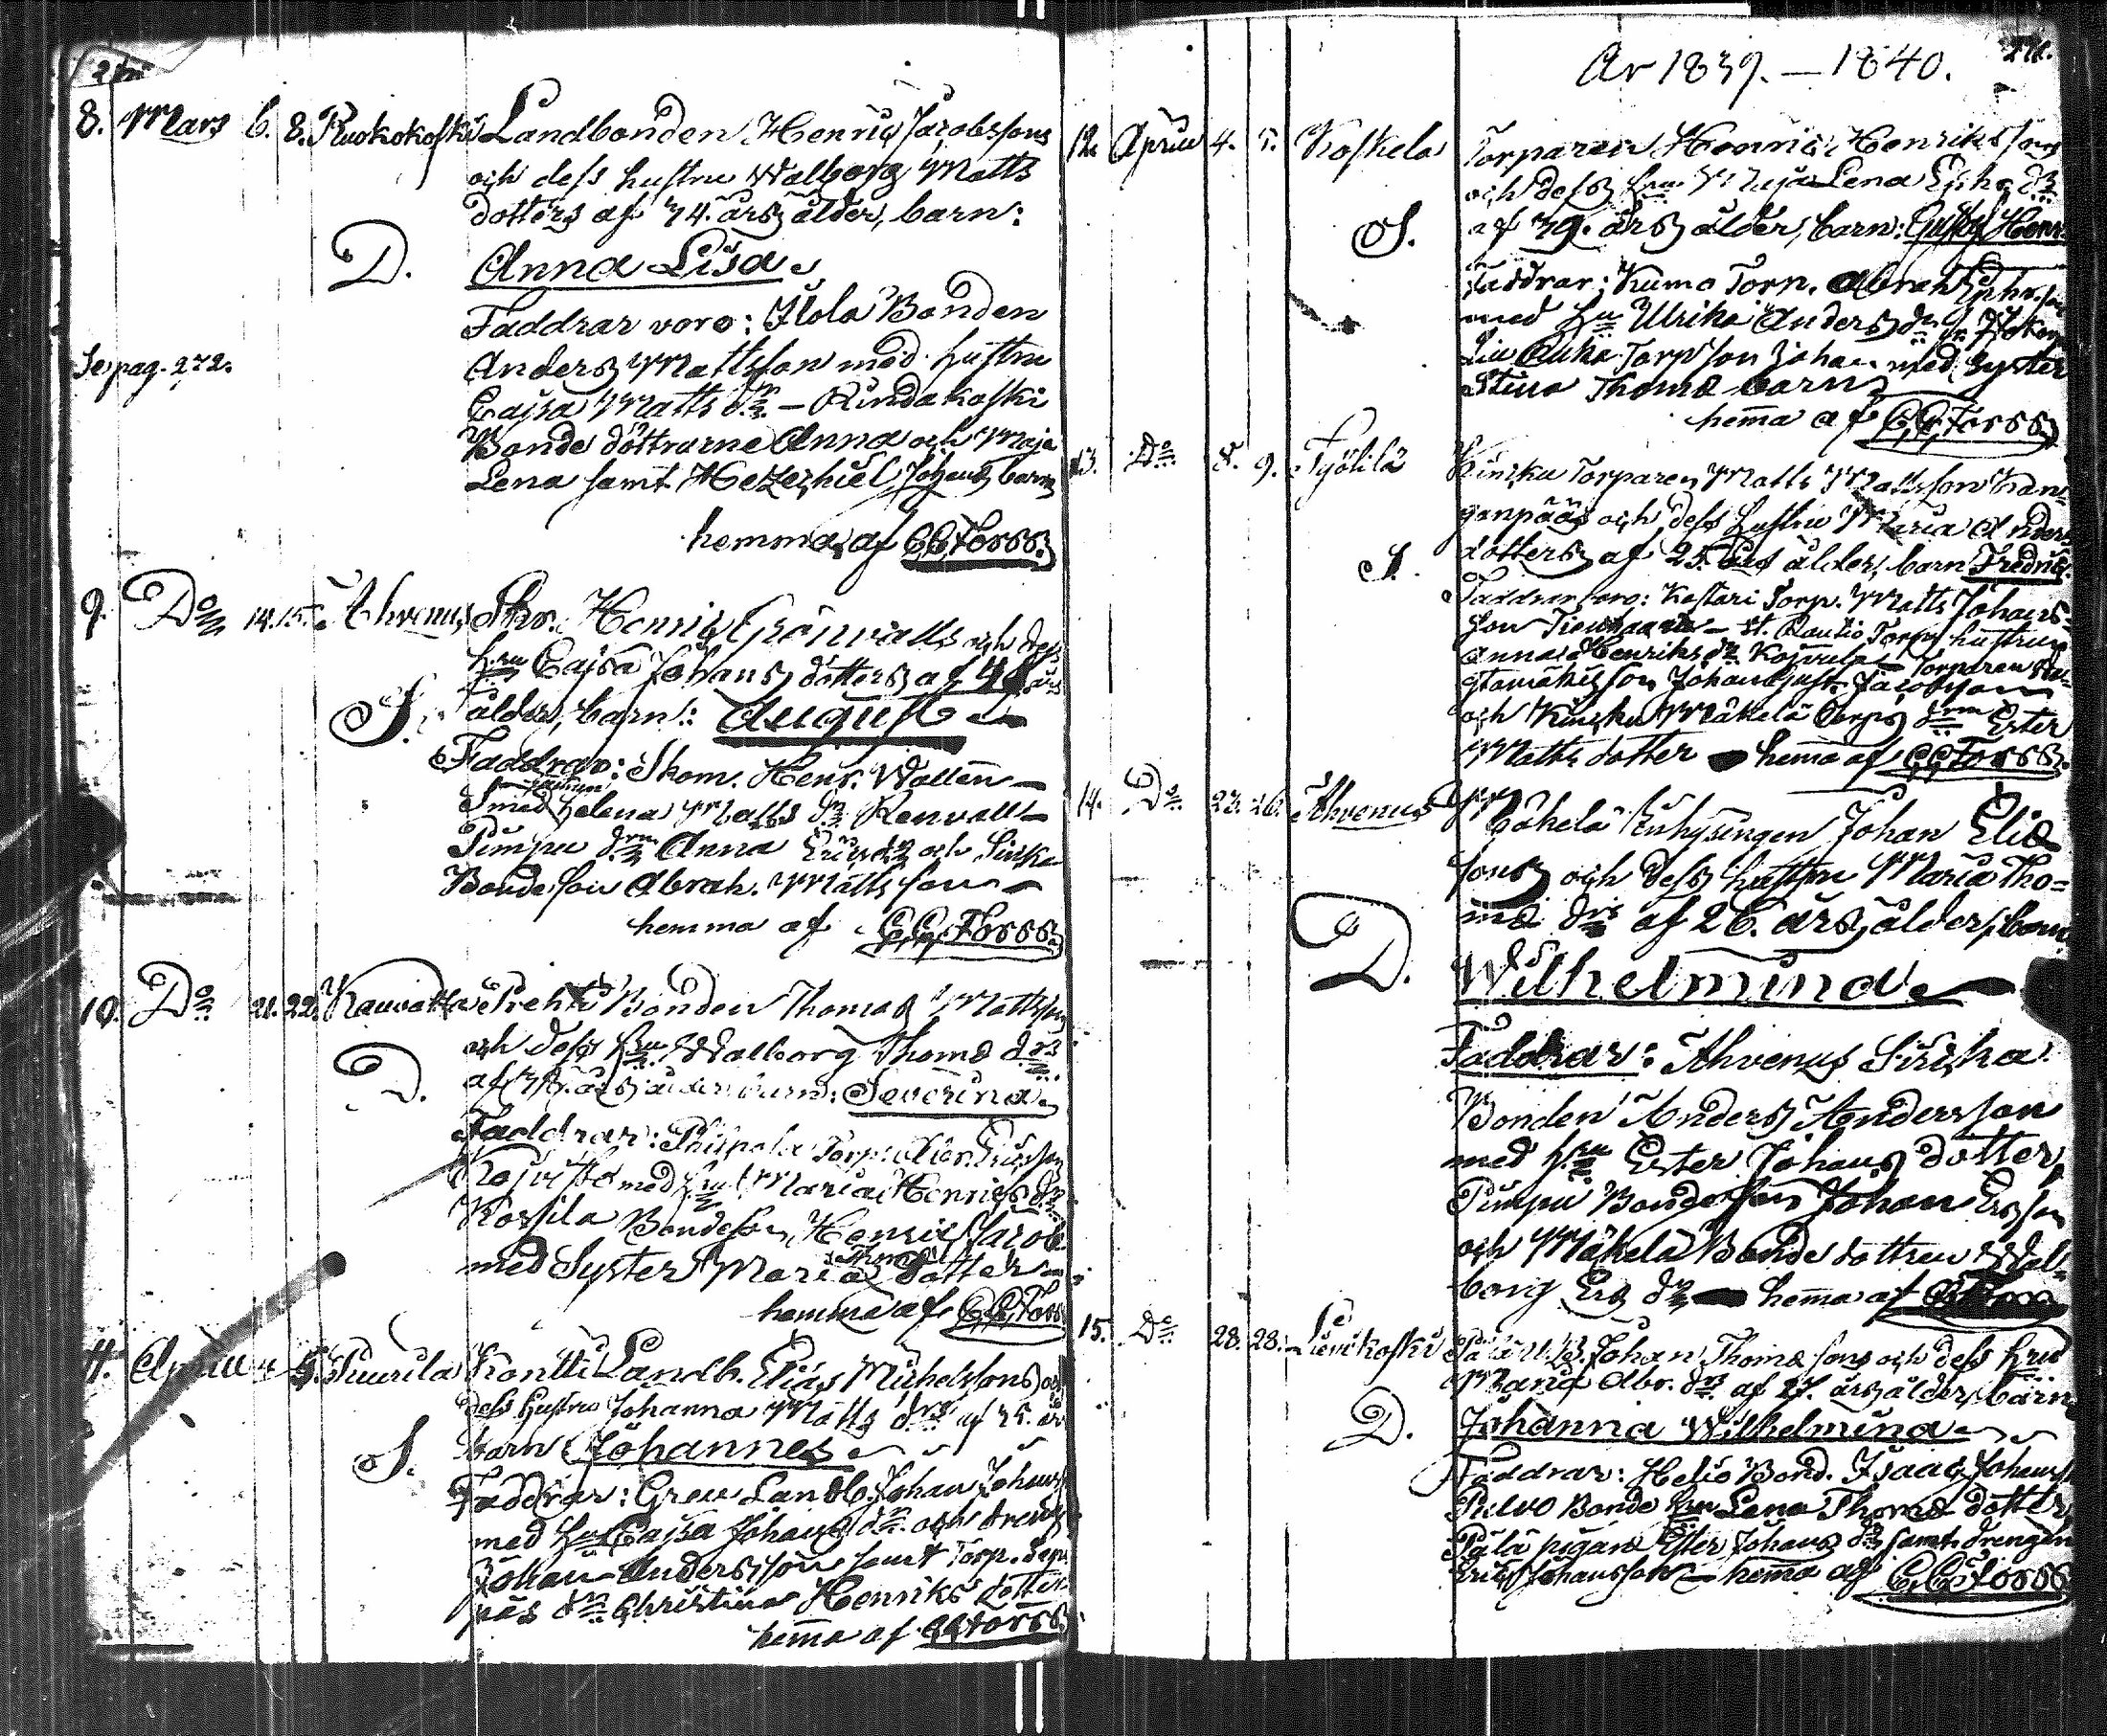 8. Mars 6. 8. Ruokokoski Landbonden Henric Jacobssons
och dess hustru Walborg Matts
dotters af 34. års ålder, barn:
D. Anna Lisa
Faddrar voro: Ilola Bonden
Anders Mattsson med hustru
Se pag. 272.
Cajsa Matts dr – Rindakoski
Bonde döttrarne Anna och Maja
Lena samt Hezechiel Johans barn
hemma af CC Forss
9. Do 14. 15. Ahvenus Skr. Henric Grönvalls och dess
hru Cajsa Johans dotters af års
S. ålder, barn: August
Faddrar: Skom. Henr. Wallen –
Smed Helena Matts dr Renvall –
Pimpu Anna Erics dr och Sirka
Bondeson Abrah. Mattsson –
hemma af CC Forss
10. Do 21. 22. Kauvatsa Prehti Bonden Thomas Mattssons
och dess hru Walborg Thomæ drs
D. af års ålder, barn: Severina
Faddrar: Torp. Abr. Ericsson
Kojvisto med hru Maria Henrics dr
Kossila Bondeson Henric Jacob
med Syster Maria Thomæ dotter –
hemma af CC Forss
11. April 4. 5. Puurila Kontti Landb. Elias Michelssons och
dess hustru Johanna Matts drs af 35. års
S. barn Johannes
Faddrar: Greu Landb. Johan Johanss
med hru Cajsa Johans dr och dreng
Johan Andersson samt Torp. Sep
päs dr Christina Henriks dotter
hema af CC Forss
År 1839. – 1840.
12. April 4. 5. Koskela Torparen Henric Henrikssons
och dess hru Maja Lena Eph. drs
S. af 39. års ålder, barn: Gustaf Henr.
Faddrar: Kumo Torp. Abrah. Ephr.son
med hru Ulrika Anders dr
Torp son Johan med Syster
Stina Thomæ barn
hema af CC Forss
13. Do 8. 9. Pyölilä Torparen Matts Mattsson
och dess hustru Maria Anders
S. dotters af 25. års ålder, barn Fredric
Faddrar voro: Kastari Torp. Matts Johans
son – St. Rautio Torp hustru
Anna Henriks dr Kojvula – Torparen
son Johan Jacobsson
och Mäkelä Torp drn Ester
Matts dotter – hema af CC Forss
14. Do 23. 26. Ahvenus Inhysingen Johan Eliæ
sons och dess hustru Maria Tho=
mæ drs af 26. års ålder, barn
D. Wilhelmina
Faddrar: Ahvenus Sirka
Bonden Anders Andersson
med hru Ester Johans dotter,
Pimpu Bondeson Johan Ersson
och Mäkelä Bonde dottren Wal=
borg Ers dr – hema af CC Forss
15. Do 28. 28. Lievikoski Pälä B. Johan Thomæ sons och dess hru
Maria Abr. drs af 27. års ålder, barn
D. Johanna Wilhelmina
Faddrar: Helio Bond. Isaac Johanss
Pulvo Bonde hru Lena Thomæ dotter
Pälä pigan Ester Johans dr samt drengen
Eric Johansson – hema af CC Forss